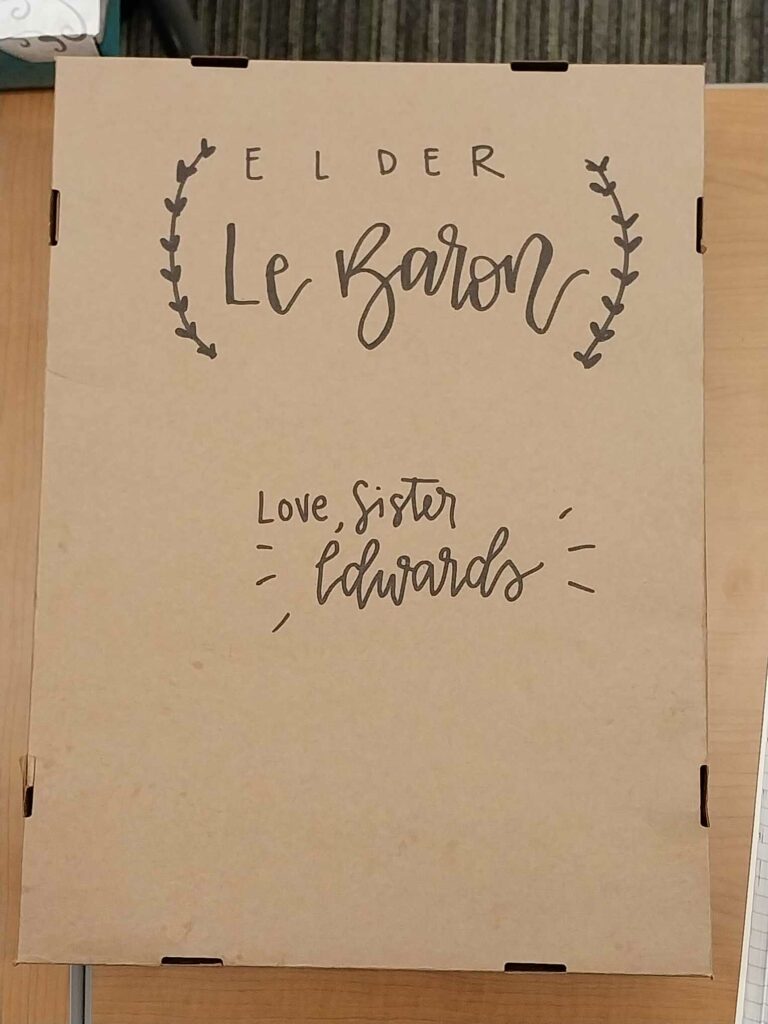 ELDER
Le Baron
Love, Sister
Edwards